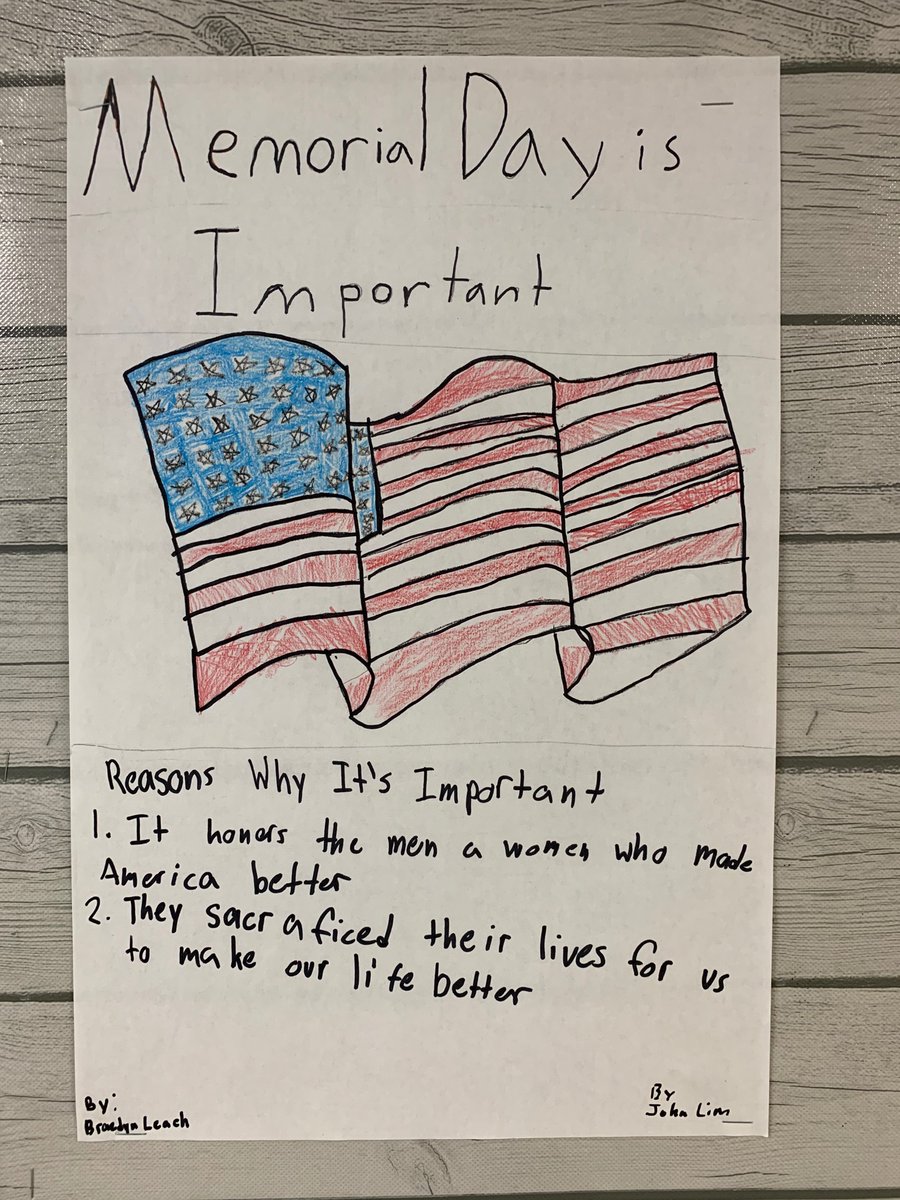 Memorial Day is
Important
Reasons Why It's Important
1. It honors the men a women who made
America better
2. They sacraficed their lives for us
to make our life better
By:
Braedyn Leach
By
John Lim